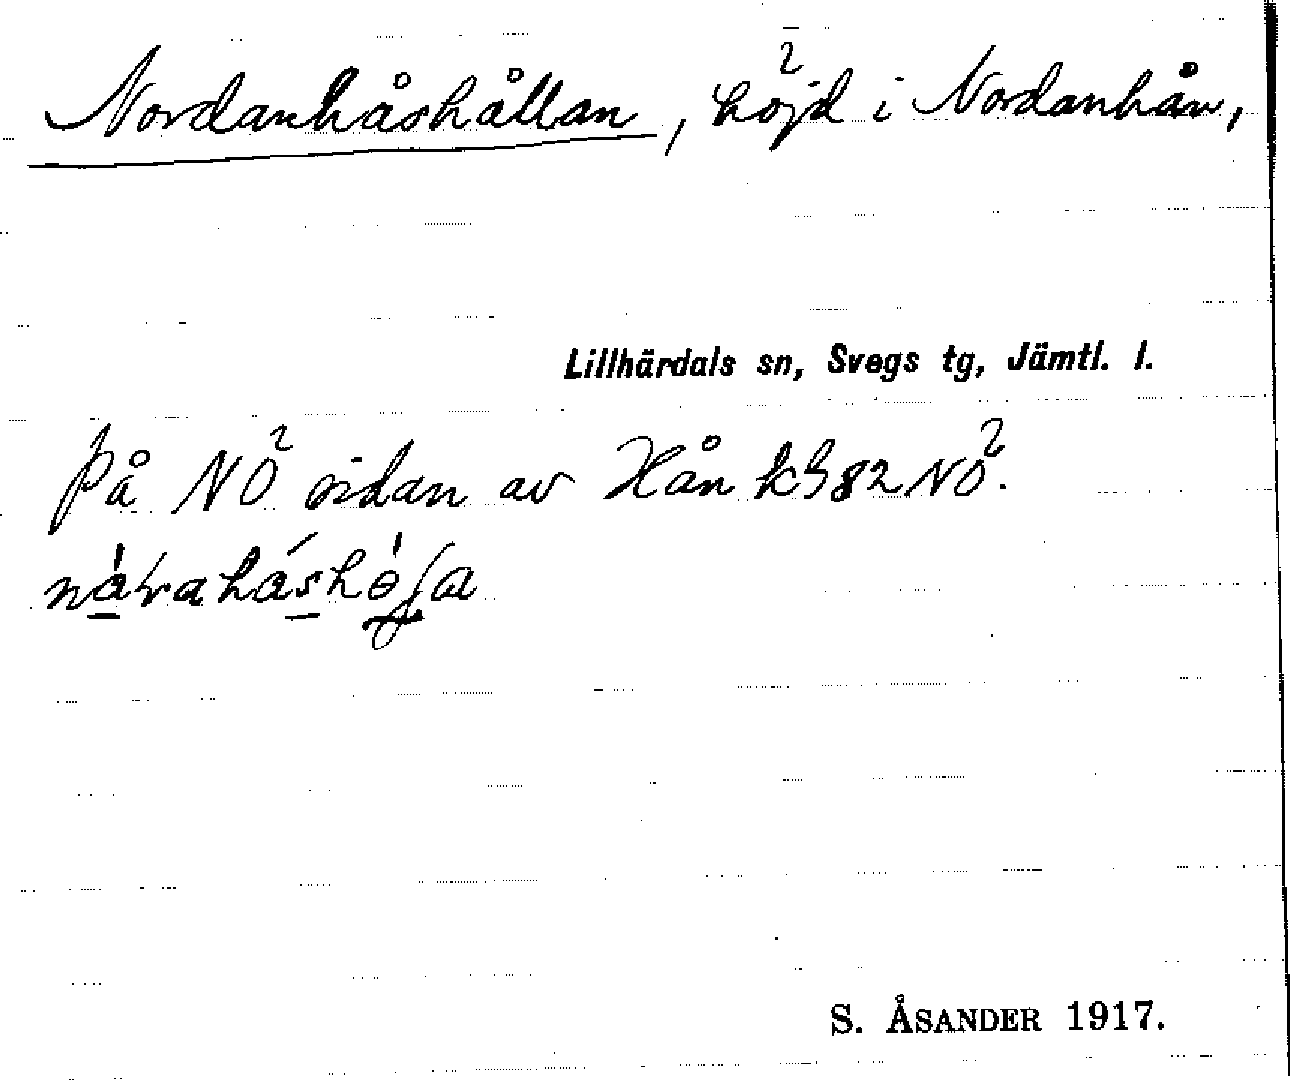 Nordanhåshållan, höjd i Nordanhån,
Lillhärdals sn, Svegs tg, Jämtl. l.
På NÖ sidan av Hån kb 82 NÖ.
S. ÅSANDER 1917.